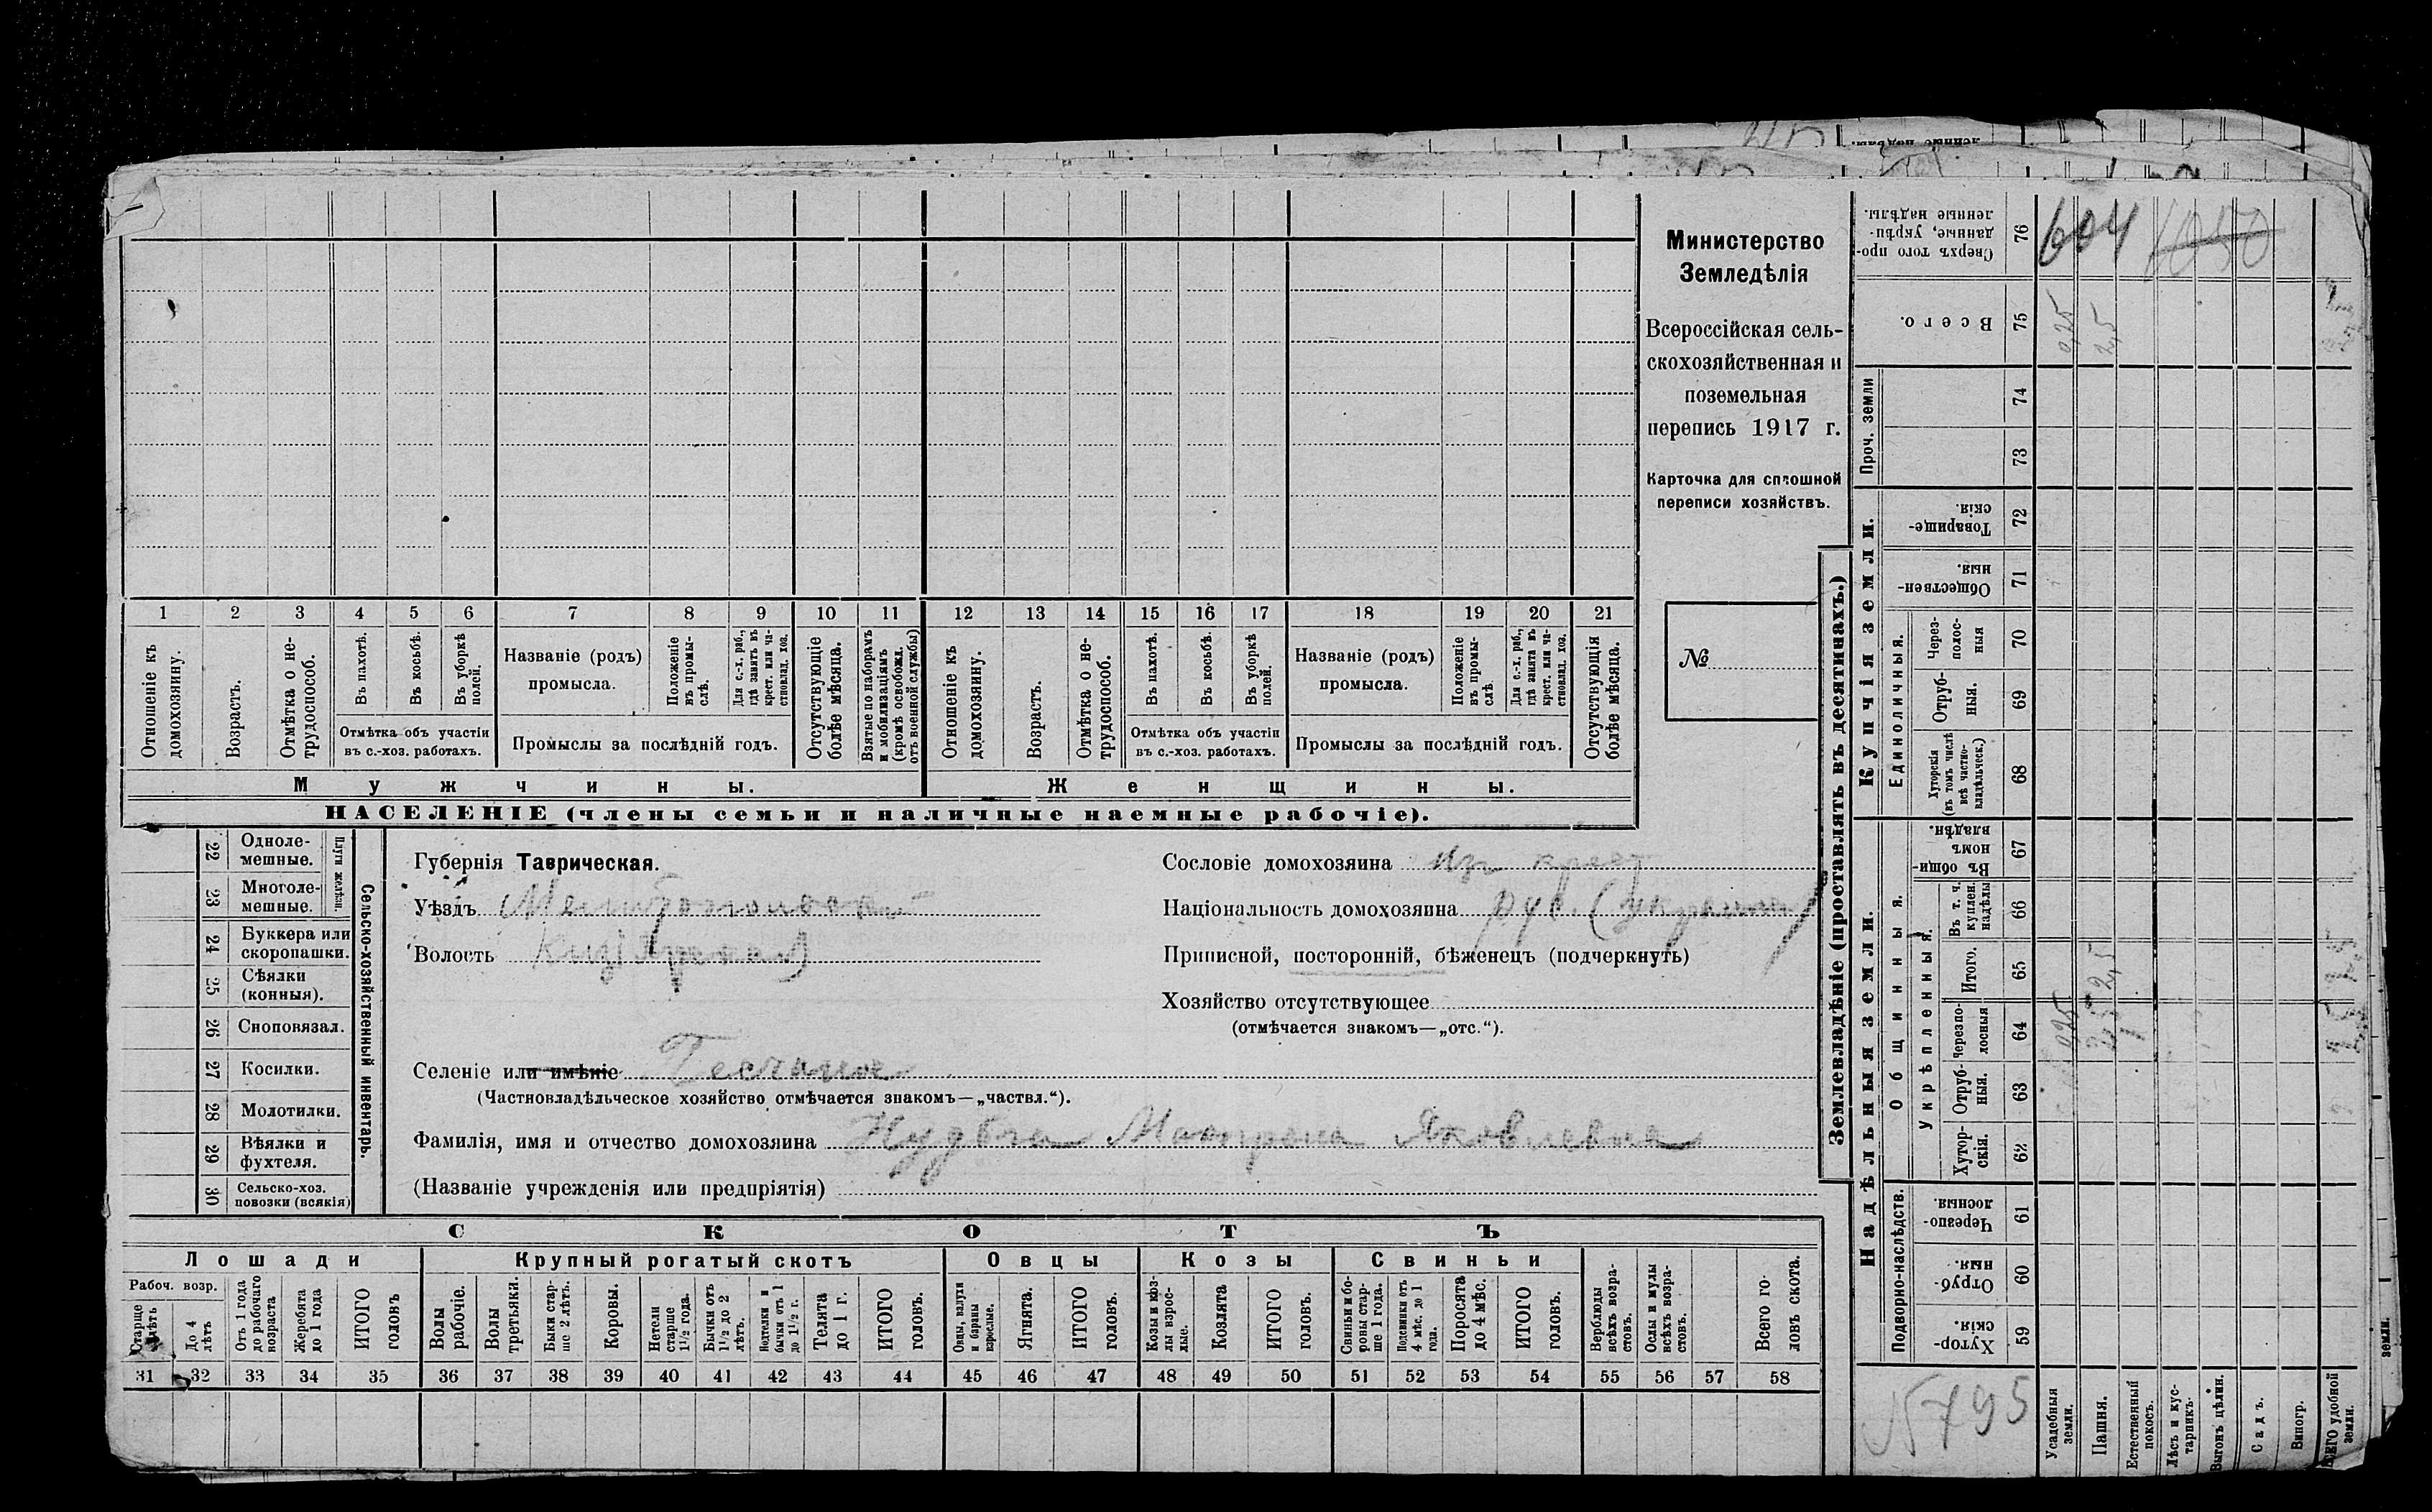 604
1050
Министерство
Земледѣлія
Всероссійская сель-
скохозяйственная и
поземельная
перепись 1917 г.
Карточка для сплошной
переписи хозяйствъ.
№
1 2 3 4 5 6 7 8 9 10 11 12 13 14 15 16 17 18 19 20 21
Отношеніе къ домохозяину.
Возрастъ.
Отмѣтка о не-трудоспособ.
Въ пахотѣ.
Въ косьбѣ.
Въ уборкѣ полей.
Отмѣтка объ участіи
въ с.-хоз. работахъ.
Названіе (родъ)
промысла.
Положеніе въ промы-слѣ.
Для с.-х. раб., гдѣ занятъ въ крест. или ча-стновлад. хоз.
Промыслы за послѣдній годъ.
Отсутствующіе болѣе мѣсяца.
Взятые по наборамъ и мобилизаціямъ (кромѣ освобожд. отъ военной службы)
Отношеніе къ домохозяину.
Возрастъ.
Отмѣтка о не-трудоспособ.
Въ пахотѣ.
Въ косьбѣ.
Въ уборкѣ полей.
Отмѣтка объ участіи
въ с.-хоз. работахъ.
Названіе (родъ)
промысла.
Положеніе въ промы-слѣ.
Для с.-х. раб., гдѣ занята въ крест. или ча-стновлад. хоз.
Промыслы за послѣдній годъ.
Отсутствующія болѣе мѣсяца.
Мужчины.
Женщины.
НАСЕЛЕНІЕ (члены семьи и наличные наемные рабочіе).
22 Одноле-мешные.
23 Многоле-мешные.
Плуги желѣзн.
24 Буккера или скоропашки.
25 Сѣялки (конныя).
26 Сноповязал.
27 Косилки.
28 Молотилки.
29 Вѣялки и фухтеля.
30 Сельско-хоз. повозки (всякія)
Сельско-хозяйственный инвентарь.
Губернія Таврическая.
Уѣздъ Мелитопольскій
Волость
Селеніе или имѣніе
(Частновладѣльческое хозяйство отмѣчается знакомъ—„частвл.“).
Фамилія, имя и отчество домохозяина Яковлевна
(Названіе учрежденія или предпріятія)
Сословіе домохозяина Из крест
Національность домохозяина рус. (украин.)
Приписной, посторонній, бѣженецъ (подчеркнуть)
Хозяйство отсутствующее
(отмѣчается знакомъ—„отс.“).
СКОТЪ
Лошади
Рабоч. возр.
Старше лѣтъ
До 4 лѣтъ
Отъ 1 года до рабочаго возраста
Жеребята до 1 года
ИТОГО головъ
Крупный рогатый скотъ
Волы рабочіе.
Волы третьяки.
Быки стар-ше 2 лѣтъ.
Коровы.
Нетели старше 1½ года.
Бычки отъ 1½ до 2 лѣтъ.
Подтелки и бычки отъ 1 до 1½ г.
Телята до 1 г.
ИТОГО головъ.
Овцы
Овцы, валухи и бараны взрослые.
Ягнята.
ИТОГО головъ.
Козы
Козы и коз-лы взрос-лые.
Козлята
ИТОГО головъ.
Свиньи
Свиньи и бо-ровы стар-ше 1 года.
Подсвинки отъ 4 мѣс. до 1 года.
Поросята до 4 мѣс.
ИТОГО головъ.
Верблюды всѣхъ возра-стовъ.
Ослы и мулы всѣхъ возра-стовъ.
Всего го-ловъ скота.
31 32 33 34 35 36 37 38 39 40 41 42 43 44 45 46 47 48 49 50 51 52 53 54 55 56 57 58
Землевладѣніе (проставлять въ десятинахъ.)
Сверхъ того про-данные, укрѣп-ленные надѣлы. 76
Всего. 75 0,25 2,5
Проч. земли 74 73
Купчія земли.
Товарище-скія. 72
Обществен-ныя. 71
Единоличныя.
Через-полос-ныя 70
Отруб-ныя. 69
Хуторскія (въ томъ числѣ всѣ частно-владѣльческ.) 68
Надѣльныя земли.
Общинныя.
Въ общи-номъ владѣн. 67
Укрѣпленныя.
Въ т. ч. куплен. надѣлы 66
Итого. 65 2,5
Черезпо-лосныя 64
Отруб-ныя. 63
Хутор-скія. 62
Подворно-наслѣдств.
Черезпо-лосныя 61
Отруб-ныя. 60
Хутор-скія. 59
№ 495
Усадебныя земли.
Пашня.
Естественный покосъ.
Лѣсъ и кус-тарникъ.
Выгонъ цѣлин.
Садъ.
Виногр.
ВСЕГО удобной земли.
земли.